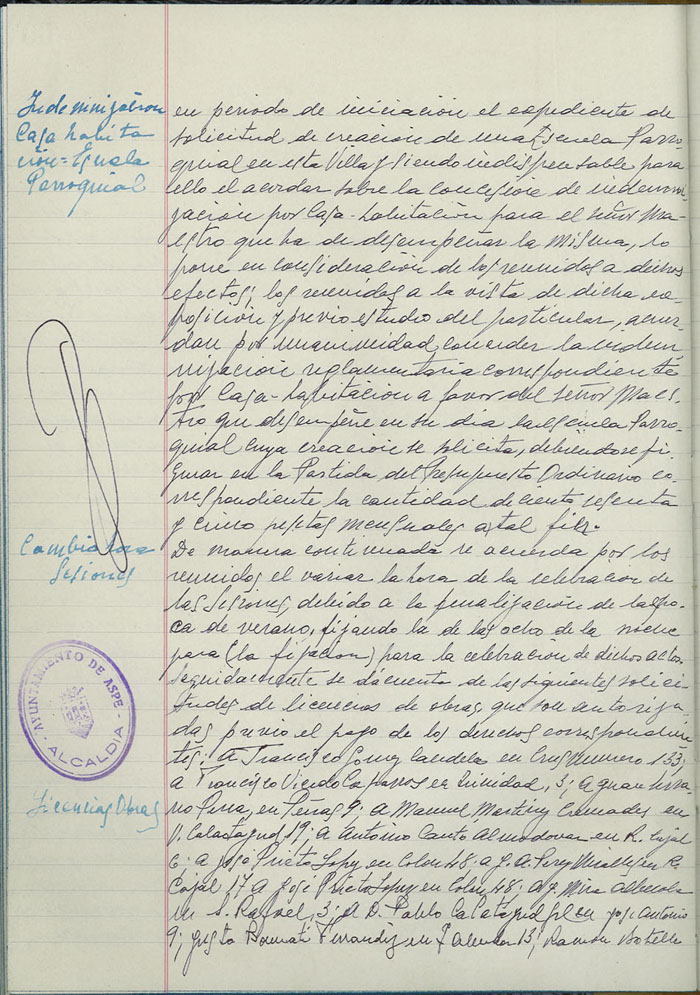 Indemnización
Casa habita
ción = Escuela
Parroquial
en periodo de iniciación el expediente de
solicitud de creación de una Escuela Parro-
quial en esta Villa y siendo indispensable para
ello el acordar sobre la concesión de indemni-
zación por Casa-habitación para el señor Ma-
estro que ha de desempeñar la misma, lo
pone en consideración de los reunidos a dichos
efectos; los reunidos a la vista de dicha ex-
posición y previo estudio del particular, acuer-
dan por unanimidad, conceder la indem-
nización reglamentaria correspondiente
por Casa-habitación a favor del señor Maes-
tro que desempeñe en su día la escuela Parro-
quial cuya creación se solicita, debiéndose fi-
gurar en la Partida del Presupuesto Ordinario co-
rrespondiente la cantidad de ciento sesenta
y cinco pesetas mensuales a tal fin.
Cambio hora
Sesiones
De manera continuada se acuerda por los
reunidos el variar la hora de la celebración de
las Sesiones, debido a la finalización de la épo-
ca de verano, fijando la de las ocho de la noche
para (la fijación) para la celebración de dichos actos.
AYUNTAMIENTO DE ASPE
ALCALDIA
Licencias Obras
Seguidamente se da cuenta de las siguientes solici-
tudes de licencias de obras, que son autoriza-
das previo el pago de los derechos correspondien-
tes; a Francisco Gomez Candela en Cruz numero 133;
a Francisco Vicedo Caparros en Trinidad, 3; a Juan
Perea, en Peñas 9; a Manuel Martinez Cremades en
P. Calatayud 19; a Antonio Canto Almodovar en R. Cajal
6; a José Prieto Lopez en Colon 48; a J. A. Perez Miralles en R.
Cajal 17 a José Prieto Lopez en Colon 48; a J. Mira Alberola
en S. Rafael, 3; a D. Pablo Calatayud Gil en José Antonio
9; Justo Bonmati Ferrandez en 13; Ramon Botella